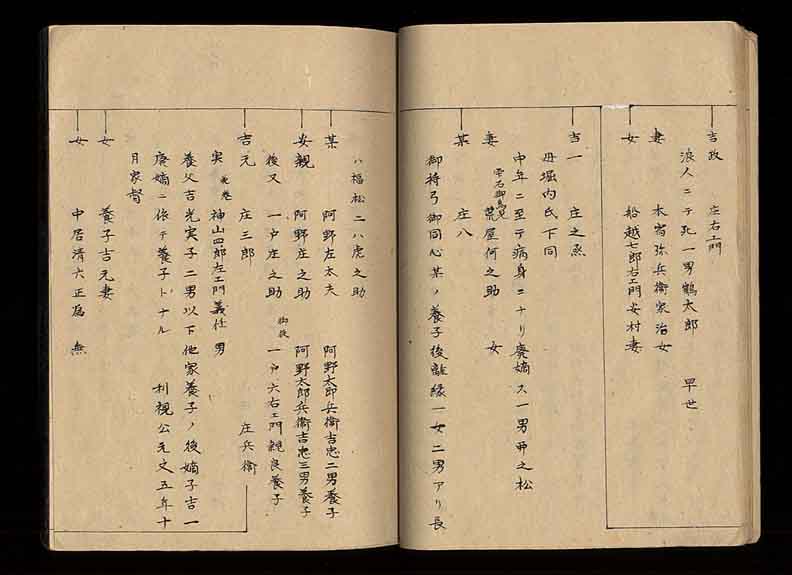 吉政 庄右エ門
浪人ニテ死一男鶴太郎 早世
妻 本宿弥兵衛家治女
女 船越七郎右エ門安村妻
吉一 庄之烝
母堀内氏下同
中年ニ至テ病身ニナリ廃嫡ス一男弔之松
妻 雫石御馬見 荒屋何之助 女
某 庄八
御持弓御同心某ノ養子後離縁一女二男アリ長
ハ福松二ハ虎之助
某 阿野左太夫 阿野太郎兵衛吉忠二男養子
安親 阿野庄之助 阿野太郎兵衛吉忠三男養子
後又 一戸庄之助 御披 一戸六右エ門親良養子
吉元 庄三郎 庄兵衛
実 神山四郎左エ門義任 男
養父吉光実子二男以下他家養子ノ後嫡子吉一
廃嫡ニ依テ養子トナル 利視公元文五年十
月家督
女 養子吉元妻
女 中居清六正為 無